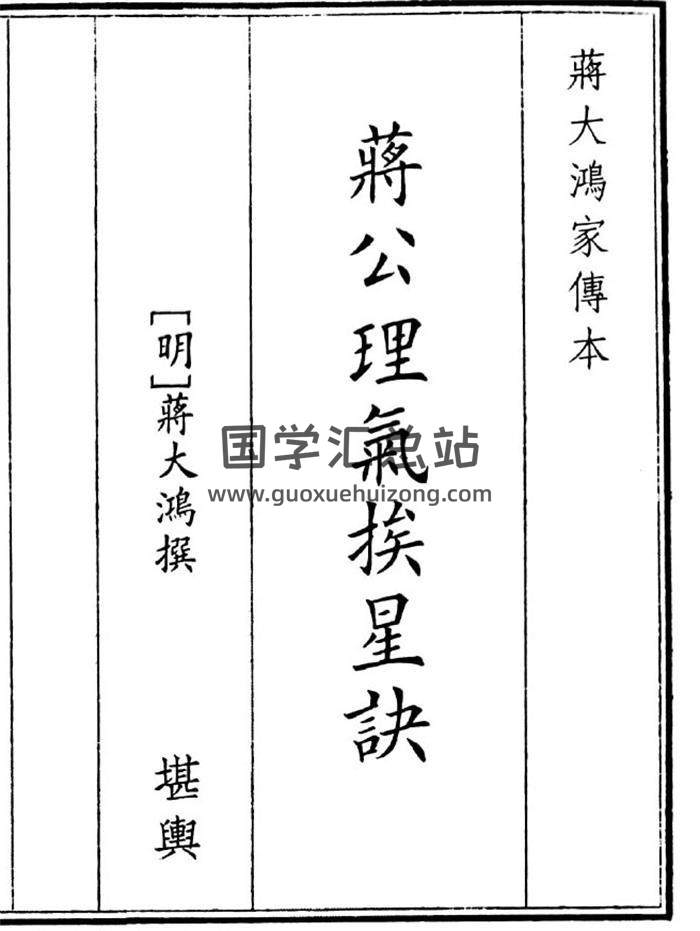 蔣大鴻家傳本
蔣公理氣挨星訣
[明]蔣大鴻撰
堪輿
国学汇总站
www.guoxuehuizong.com